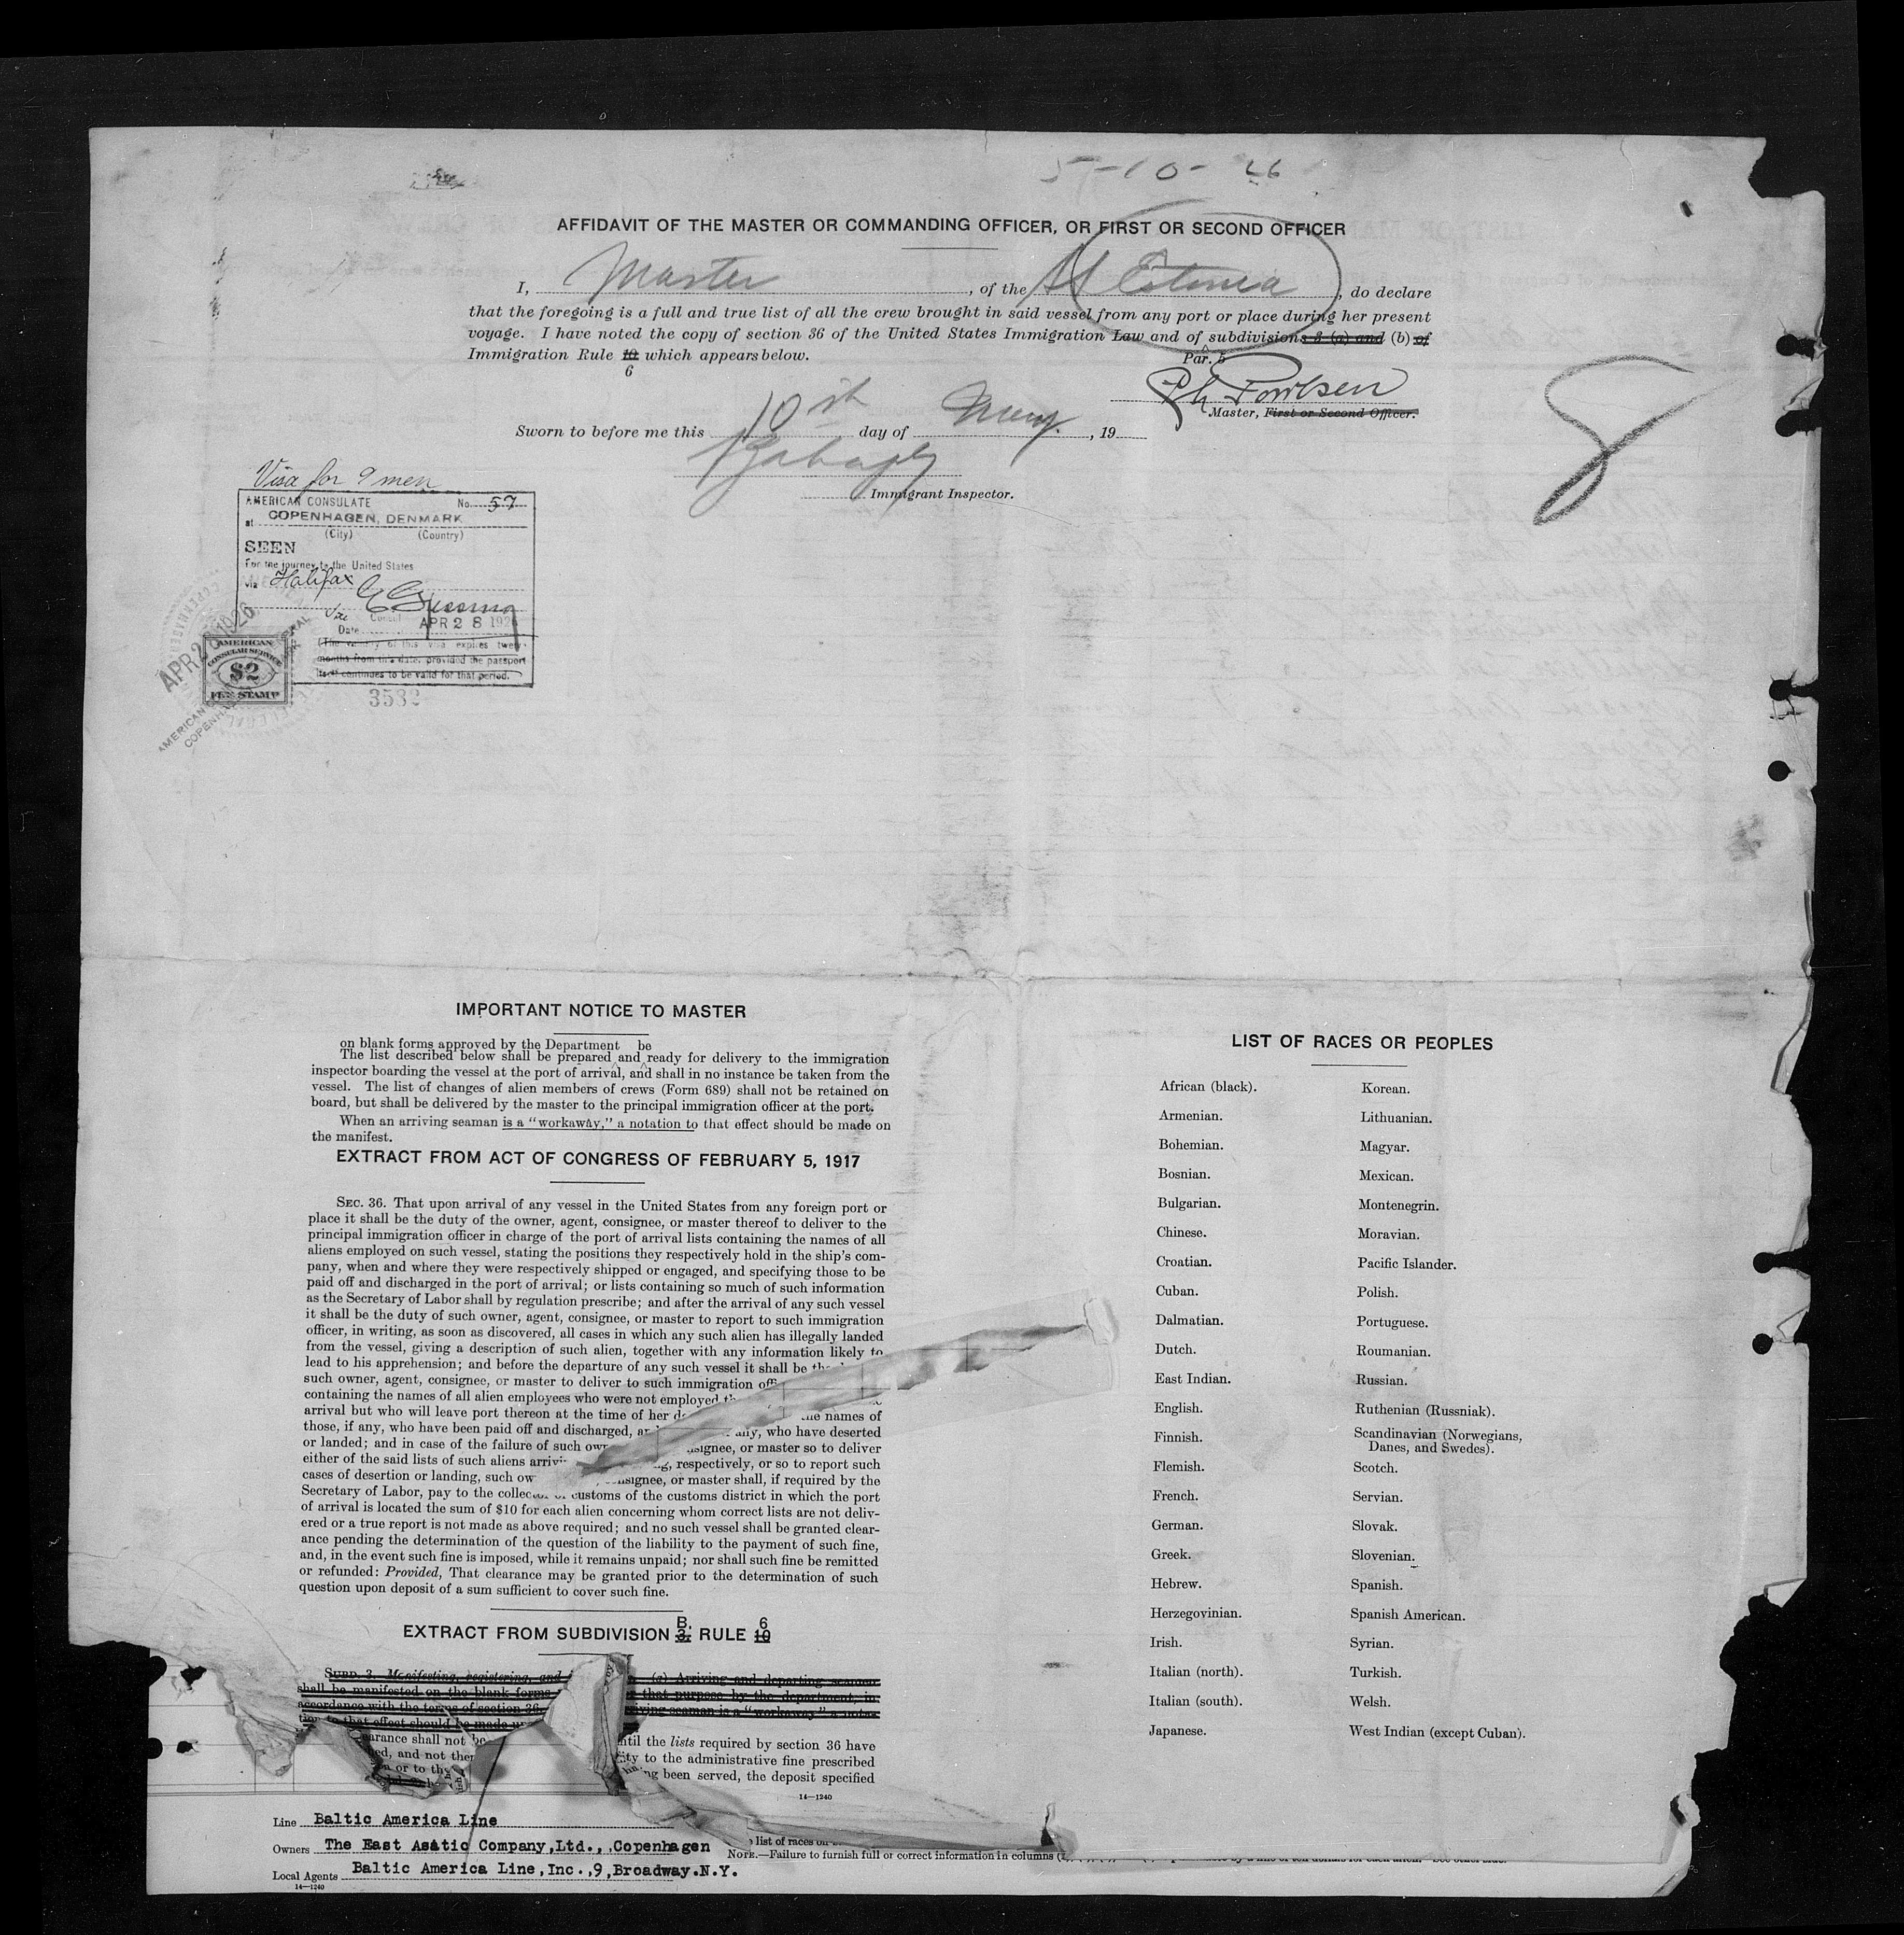 5-10-26
AFFIDAVIT OF THE MASTER OR COMMANDING OFFICER, OR FIRST OR SECOND OFFICER
I, Master, of the SS Estonia, do declare
that the foregoing is a full and true list of all the crew brought in said vessel from any port or place during her present
voyage. I have noted the copy of section 36 of the United States Immigration Law and of subdivisions 3 (a) and (b) of
Par. 5
Immigration Rule 10 which appears below.
6
Master, First or Second Officer.
Sworn to before me this 10th day of May, 19
Immigrant Inspector.
8
Visa for 9 men
AMERICAN CONSULATE No. 57
at COPENHAGEN, DENMARK
(City) (Country)
SEEN
For the journey to the United States
via Halifax
Consul
Date APR 28 1926
(The validity of this visa expires twelve
months from this date, provided the passport
itself continues to be valid for that period.
3582
APR 28 1926
AMERICAN
CONSULAR SERVICE
$2
FEE STAMP
IMPORTANT NOTICE TO MASTER
on blank forms approved by the Department be
The list described below shall be prepared and ready for delivery to the immigration
inspector boarding the vessel at the port of arrival, and shall in no instance be taken from the
vessel. The list of changes of alien members of crews (Form 689) shall not be retained on
board, but shall be delivered by the master to the principal immigration officer at the port.
When an arriving seaman is a "workaway," a notation to that effect should be made on
the manifest.
EXTRACT FROM ACT OF CONGRESS OF FEBRUARY 5, 1917
SEC. 36. That upon arrival of any vessel in the United States from any foreign port or
place it shall be the duty of the owner, agent, consignee, or master thereof to deliver to the
principal immigration officer in charge of the port of arrival lists containing the names of all
aliens employed on such vessel, stating the positions they respectively hold in the ship's com-
pany, when and where they were respectively shipped or engaged, and specifying those to be
paid off and discharged in the port of arrival; or lists containing so much of such information
as the Secretary of Labor shall by regulation prescribe; and after the arrival of any such vessel
it shall be the duty of such owner, agent, consignee, or master to report to such immigration
officer, in writing, as soon as discovered, all cases in which any such alien has illegally landed
from the vessel, giving a description of such alien, together with any information likely to
lead to his apprehension; and before the departure of any such vessel it shall be
such owner, agent, consignee, or master to deliver to such immigration
containing the names of all alien employees who were not employed
arrival but who will leave port thereon at the time of her the names of
those, if any, who have been paid off and discharged, any, who have deserted
or landed; and in case of the failure of such consignee, or master so to deliver
either of the said lists of such aliens respectively, or so to report such
cases of desertion or landing, such consignee, or master shall, if required by the
Secretary of Labor, pay to the collector of customs of the customs district in which the port
of arrival is located the sum of $10 for each alien concerning whom correct lists are not deliv-
ered or a true report is not made as above required; and no such vessel shall be granted clear-
ance pending the determination of the question of the liability to the payment of such fine,
and, in the event such fine is imposed, while it remains unpaid; nor shall such fine be remitted
or refunded: Provided, That clearance may be granted prior to the determination of such
question upon deposit of a sum sufficient to cover such fine.
B. 6
EXTRACT FROM SUBDIVISION 3. RULE 10
SUBD. 3. Manifesting, registering, and (a) Arriving and departing seamen
shall be manifested on the blank forms that purpose by the department, in
accordance with the terms of section 36. arriving seaman is a "workaway" a nota-
tion to that effect should be made
clearance shall not be until the lists required by section 36 have
and not to the administrative fine prescribed
or to been served, the deposit specified
14—1240
Line Baltic America Line
Owners The East Asiatic Company,Ltd.,,Copenhagen
Local Agents Baltic America Line,Inc.,9,Broadway.N.Y.
14—1240
list of races on
NOTE.—Failure to furnish full or correct information in columns
LIST OF RACES OR PEOPLES
African (black).
Armenian.
Bohemian.
Bosnian.
Bulgarian.
Chinese.
Croatian.
Cuban.
Dalmatian.
Dutch.
East Indian.
English.
Finnish.
Flemish.
French.
German.
Greek.
Hebrew.
Herzegovinian.
Irish.
Italian (north).
Italian (south).
Japanese.
Korean.
Lithuanian.
Magyar.
Mexican.
Montenegrin.
Moravian.
Pacific Islander.
Polish.
Portuguese.
Roumanian.
Russian.
Ruthenian (Russniak).
Scandinavian (Norwegians,
Danes, and Swedes).
Scotch.
Servian.
Slovak.
Slovenian.
Spanish.
Spanish American.
Syrian.
Turkish.
Welsh.
West Indian (except Cuban).